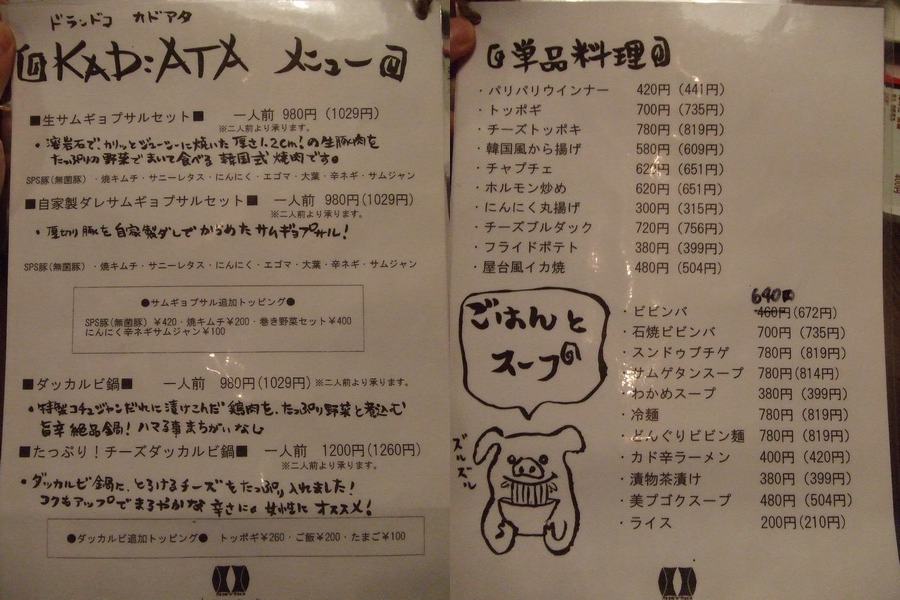 ドランドコ カドアタ
KAD:ATA メニュー
■生サムギョプサルセット■ 一人前 980円(1029円)
※二人前より承ります。
・溶岩石で、カリッとジューシーに焼いた厚さ1.2cm!の生豚肉を
たっぷりの野菜でまいて食べる 韓国式 焼肉です。
SPS豚(無菌豚)・焼キムチ・サニーレタス・にんにく・エゴマ・大葉・辛ネギ・サムジャン
■自家製ダレサムギョプサルセット■ 一人前 980円(1029円)
※二人前より承ります。
・厚切り豚を自家製ダレでからめたサムギョプサル!
SPS豚(無菌豚)・焼キムチ・サニーレタス・にんにく・エゴマ・大葉・辛ネギ・サムジャン
●サムギョプサル追加トッピング●
SPS豚(無菌豚)¥420・焼キムチ¥200・巻き野菜セット¥400
にんにく辛ネギサムジャン¥100
■ダッカルビ鍋■ 一人前 980円(1029円)※二人前より承ります。
・特製コチュジャンだれに漬けこんだ鶏肉を、たっぷり野菜と煮込む
旨辛絶品鍋!ハマる事まちがいなし
■たっぷり!チーズダッカルビ鍋■ 一人前 1200円(1260円)
※二人前より承ります。
・ダッカルビ鍋に、とろけるチーズをたっぷり入れました!
コクもアップでまろやかな辛さに。女性にオススメ!
●ダッカルビ追加トッピング● トッポギ¥260・ご飯¥200・たまご¥100
単品料理
・パリパリウインナー 420円(441円)
・トッポギ 700円(735円)
・チーズトッポキ 780円(819円)
・韓国風から揚げ 580円(609円)
・チャプチェ 620円(651円)
・ホルモン炒め 620円(651円)
・にんにく丸揚げ 300円(315円)
・チーズブルダック 720円(756円)
・フライドポテト 380円(399円)
・屋台風イカ焼 480円(504円)
ごはんと
スープ
640円
・ビビンバ 460円(672円)
・石焼ビビンバ 700円(735円)
・スンドゥブチゲ 780円(819円)
・サムゲタンスープ 780円(814円)
・わかめスープ 380円(399円)
・冷麺 780円(819円)
・どんぐりビビン麺 780円(819円)
・カド辛ラーメン 400円(420円)
・漬物茶漬け 380円(399円)
・美プゴクスープ 480円(504円)
・ライス 200円(210円)
ズルズル